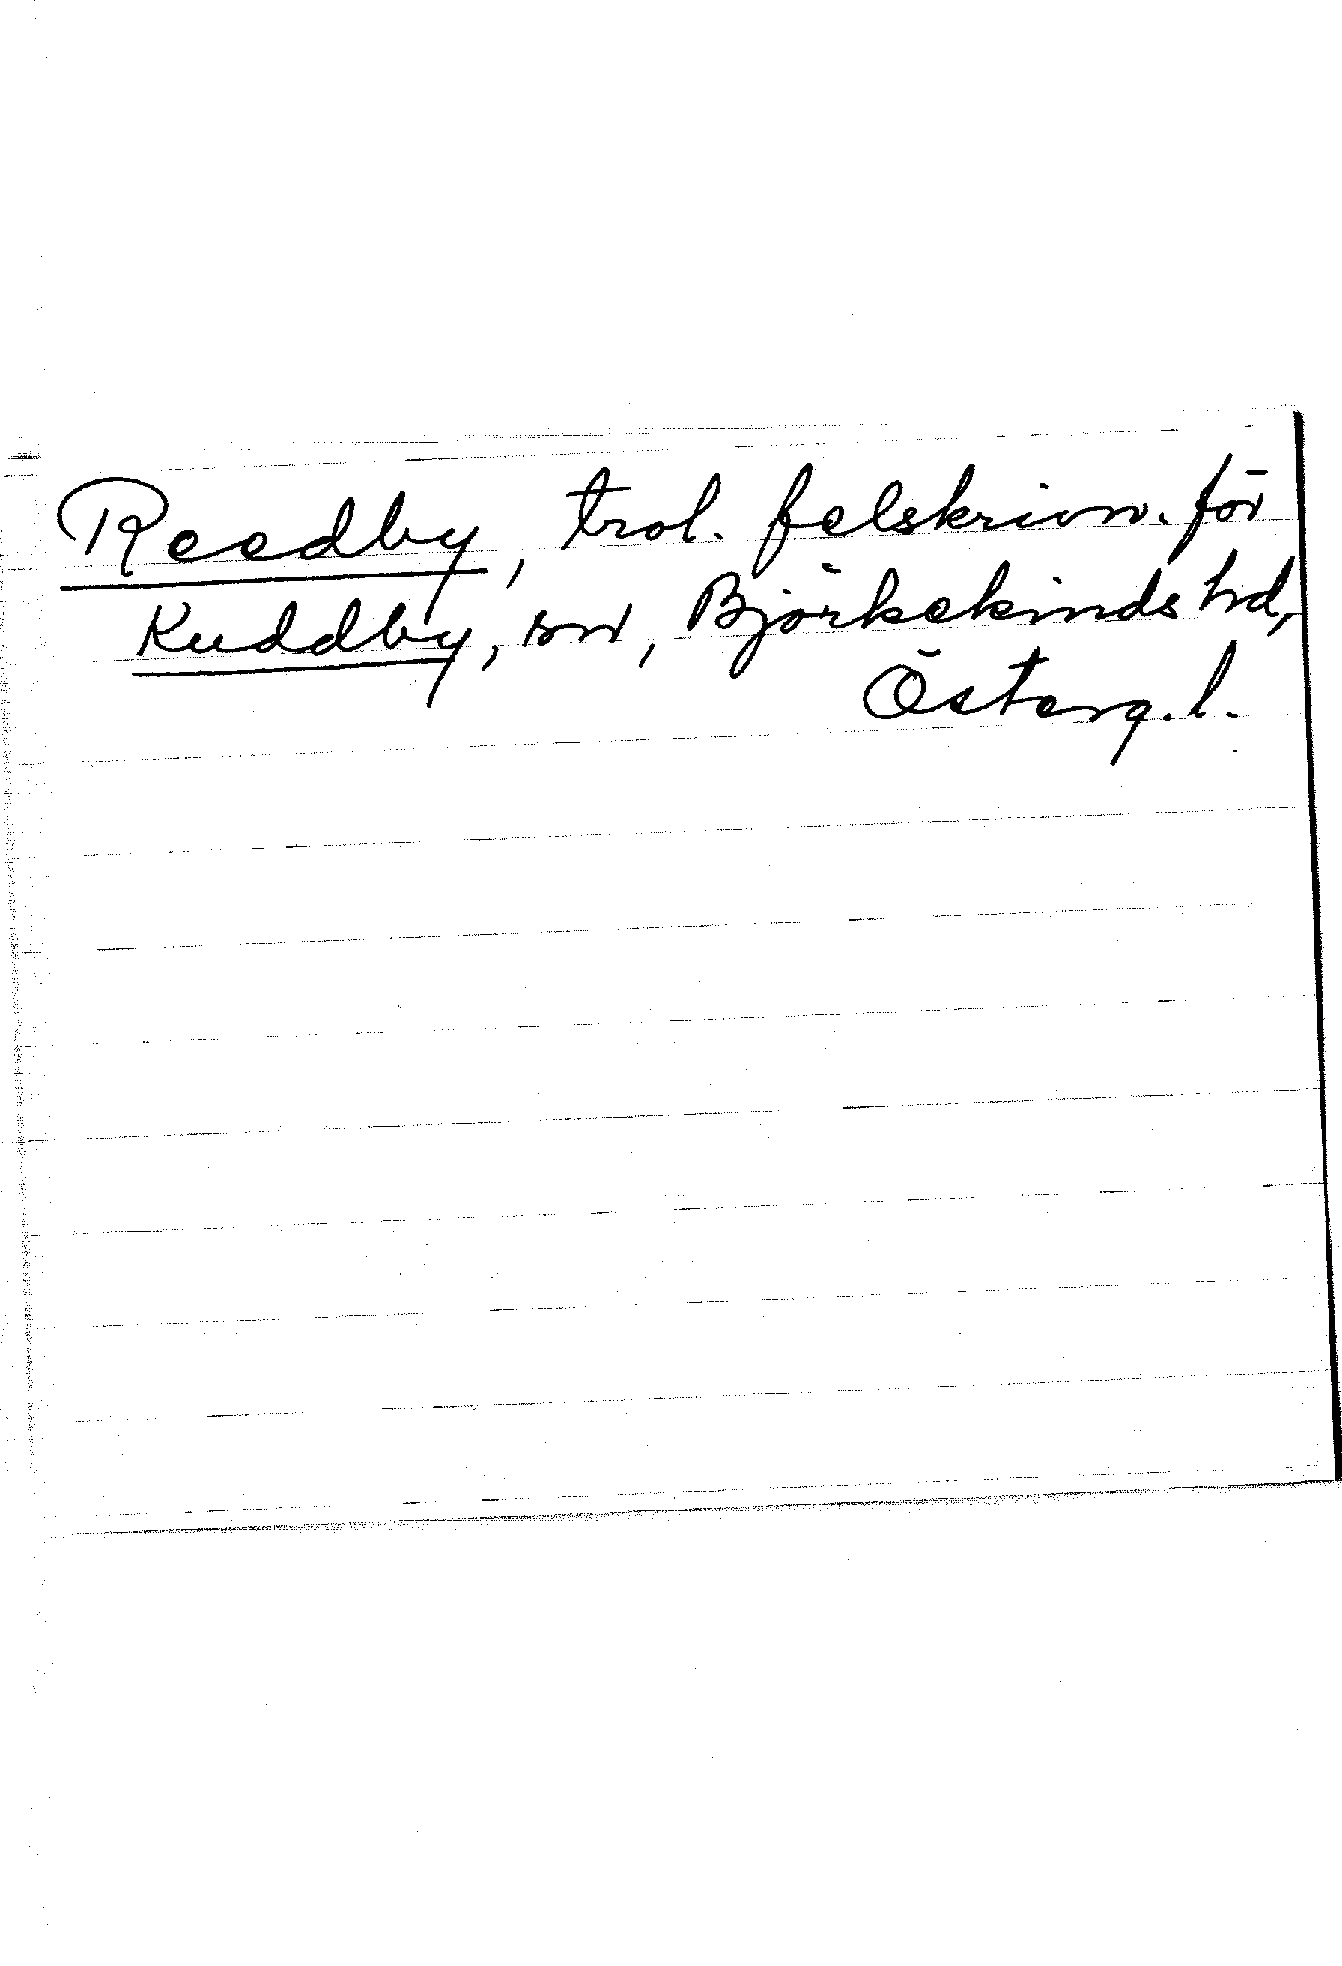 Reedby, trol. felskrivn. för
Kuddby, sn, Björkekinds hd,
Österg. l.